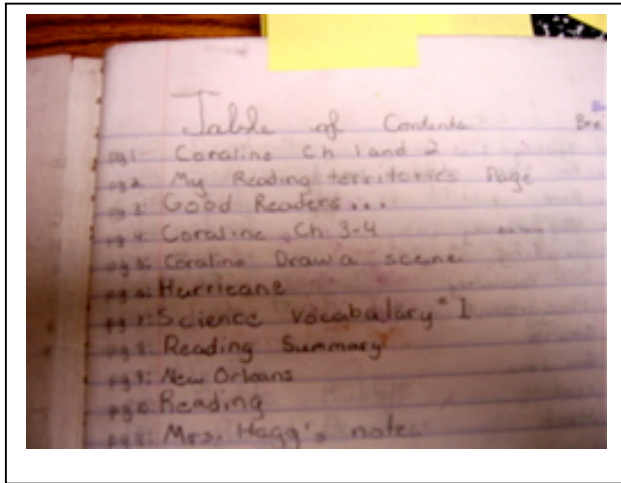 Table of Contents
pg 1: Coraline Ch 1 and 2
pg 2: My Reading territories Page
pg 3: Good Readers...
pg 4: Coraline Ch 3-4
pg 5: Coraline Draw a scene
pg 6: Hurricane
pg 7: Science Vocabulary # 1
pg 8: Reading Summary
pg 9: New Orleans
Reading
Mrs. Hagg's notes